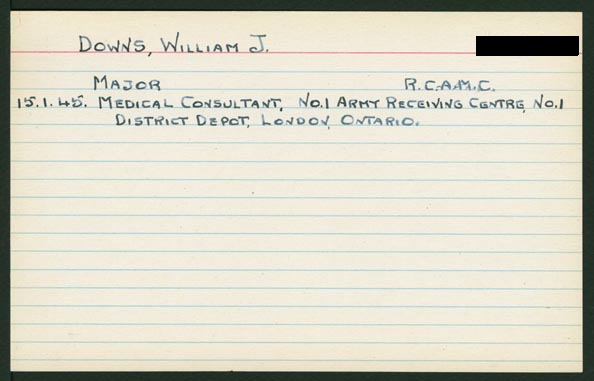 DOWNS, WILLIAM J.
MAJOR R.C.A.M.C.
15.1.45. MEDICAL CONSULTANT, NO.1 ARMY RECEIVING CENTRE, NO.1
DISTRICT DEPOT, LONDON, ONTARIO.